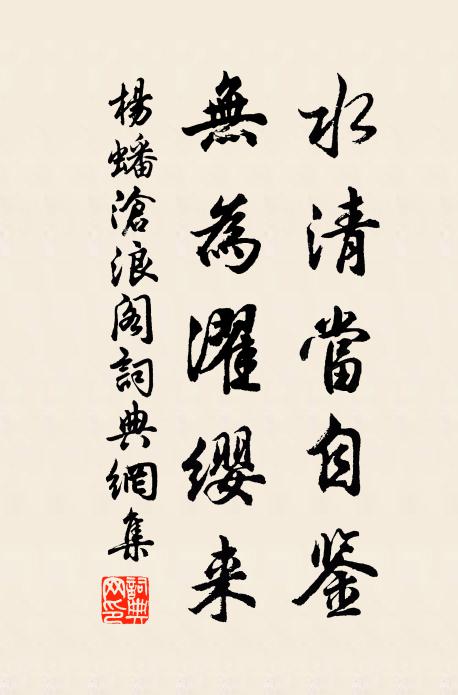 水清當自鉴
無為濯缨来
楊蟠滄浪阁詞典網集
詞典网印